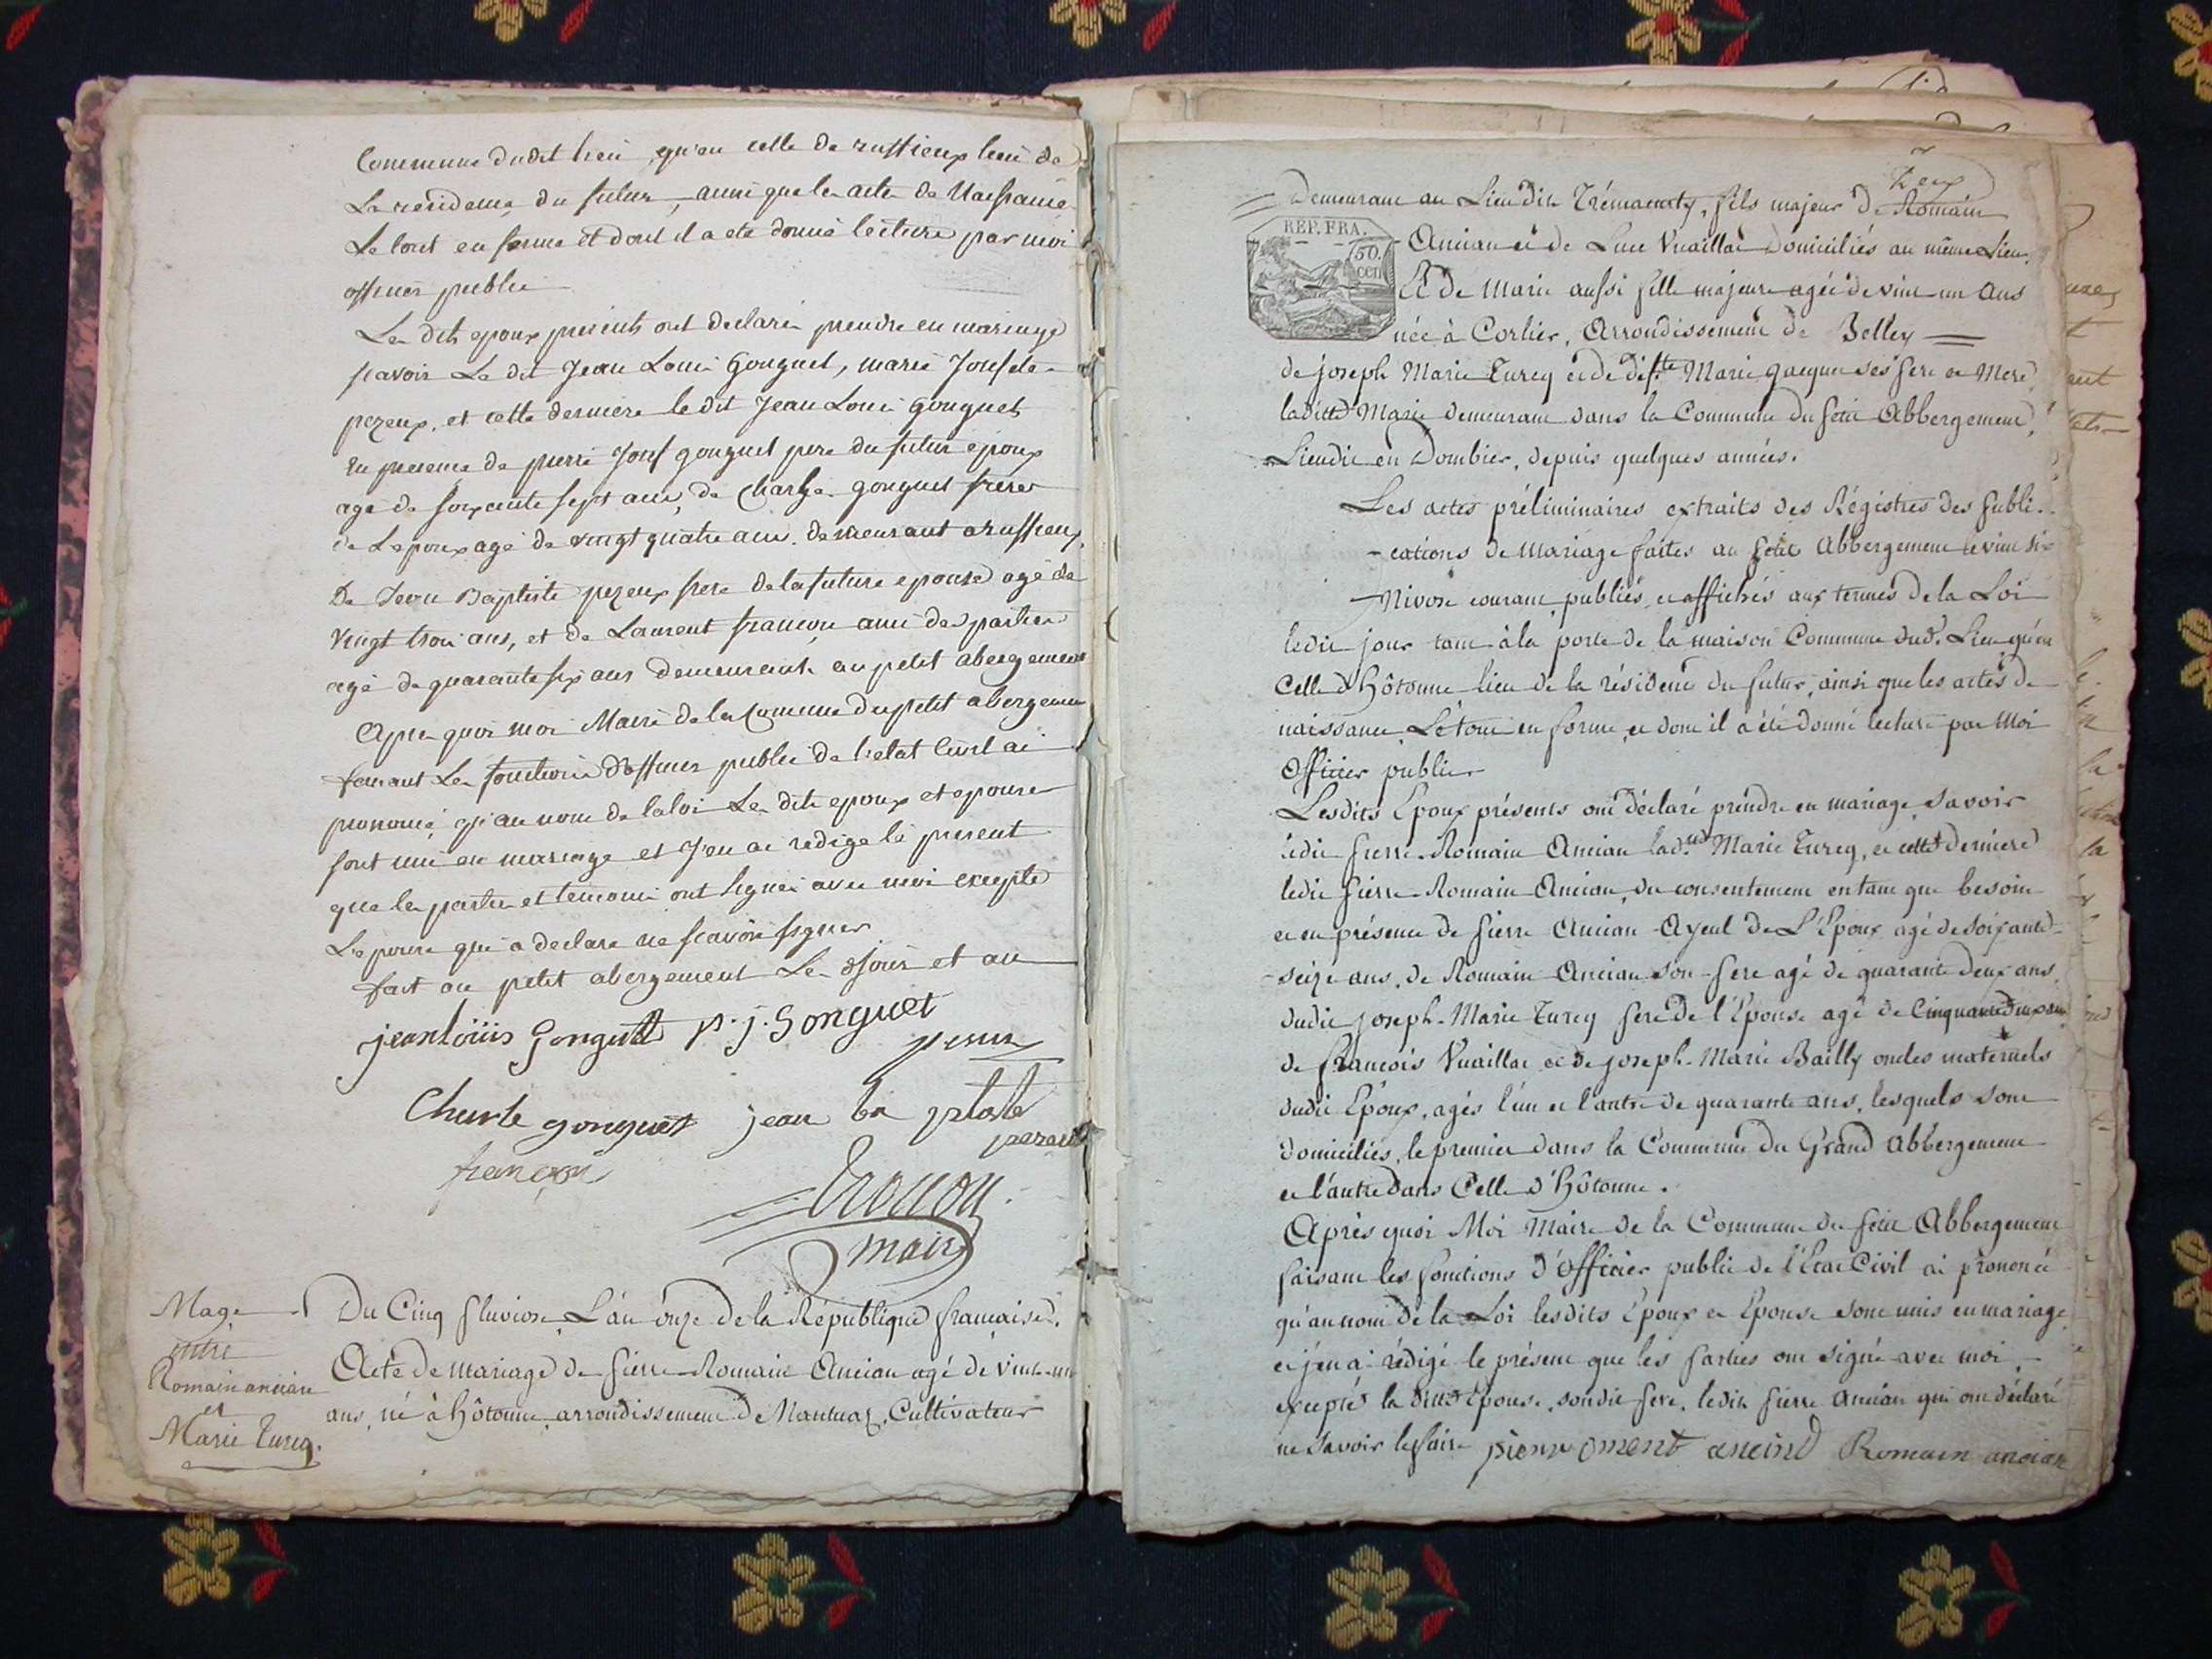 Commune dudit lieu, qu'en celle de ruffieux lieu de
La residence du futur, ainsi que les actes de Naissance
Le tout en forme et dont il a ete donné lecture par moi
officier public
Les dits epoux presents ont declaré prendre en mariage
scavoir Le dit Jean Louis Gonguet, marie Josefete
pezeux, et cette derniere le dit Jean Louis Gonguet
En presence de pierre Josef gonguet pere du futur epoux
agé de soixante sept ans, de Charle gonguet frere
de Lepoux agé de vingt quatre ans demeurant a ruffieux,
De Jean Baptiste pezeux frere de la future epouse agé de
vingt trois ans, et de Laurent françon ami des parties
agé de quarante six ans demeurants au petit abergement
Apres quoi moi Maire de la Commune du petit abergement
faisant Les fonctions d'officier public de l'etat Civil ai
prononcé qu'au nom de la loi Les dits epoux et epouse
sont unis en mariage et J'en ai redigé le present
que les parties et temoins ont signés avec moi excepté
L'epouse qui a declaré ne scavoir signer
fait au petit abergement Les jour et an
jean loüis Gonguet p. j. Gonguet
Charle gonguet jean ba ptiste
pezeux
françon
maire
Mage
entre
Romain ancian
et
Marie Turcq.
Du Cinq Pluviose, L'an onze de la République française.
Acte de mariage de Pierre-Romain Ancian agé de vint-un
ans, né à hôtonne, arrondissement de Nantua, Cultivateur
Deux
Demeurant au Lieu dit, fils majeur de Romain
REP. FRA.
50.
cen
Ancian et de Luce Vuaillat domiciliés au même Lieu,
Et de Marie aussi fille majeure agée de vint-un ans
née à Corlier, Arrondissement de Belley
de joseph Marie Turcq et de déf.te Marie ses Pere et Mere
laditte Marie demeurant dans la Commune du Petit Abbergement,
Lieudit en Dombier, depuis quelques années.
Les actes préliminaires extraits des Régistres des Publi-
-cations de mariage faites au Petit Abbergement le vint six
Nivose courant, publiés et affichés aux termes de la Loi
ledit jour tant à la porte de la maison Commune dud. Lieu qu'en
Celle d'Hôtonne lieu de la résidence du futur, ainsi que les actes de
naissance, Le tout en forme, et dont il a été donné lecture par Moi
Officier public
Lesdits Epoux présents ont déclaré prendre en mariage, Savoir
ledit Pierre-Romain Ancian lad. Marie Turcq, et cette derniere
ledit Pierre-Romain Ancian, du consentement en tant que besoin
et en présence de Pierre Ancian Ayeul de L'Epoux agé de soixante-
-seize ans, de Romain Ancian son Pere agé de quarante deux ans,
dudit joseph-Marie Turcq Pere de l'Epouse agé de Cinquante deux ans
de françois Vuaillat et de joseph-Marie Bailly oncles maternels
dudit Epoux, agés l'un et l'autre de quarante ans, lesquels sont
domiciliés, le premier dans la Commune du Grand Abbergement
et l'autre dans Celle d'Hôtonne.
Après quoi Moi Maire de la Commune du Petit Abbergement
faisant les fonctions d'Officier public de l'Etat Civil ai prononcé
qu'au nom de la Loi lesdits Epoux et Epouse sont unis en mariage,
et j'en ai rédigé le présent que les Parties ont signé avec moi,
excepté la ditte Epouse, sondit Pere, ledit Pierre Ancian qui ont déclaré
ne savoir le faire Romain ancian